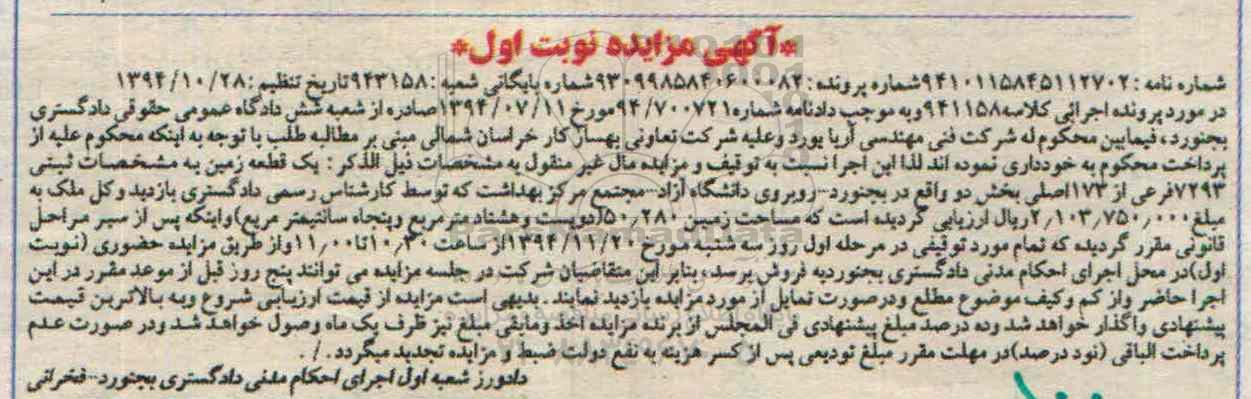 *آگهی مزایده نوبت اول*
شماره نامه : ۹۴۱۰۱۱۵۸۴۵۱۱۲۷۰۲شماره پرونده : ۹۳۰۹۹۸۵۸۴۰۶۰۰۰۸۲شماره بایگانی شعبه :۹۴۳۱۵۸تاریخ تنظیم :۱۳۹۴/۱۰/۲۸
در مورد پرونده اجرائی کلاسه۹۴۱۱۵۸وبه موجب دادنامه شماره۹۴/۷۰۰۷۲۱مورخ ۱۳۹۴/۰۷/۱۱صادره از شعبه شش دادگاه عمومی حقوقی دادگستری
بجنورد، فیمابین محکوم له شرکت فنی مهندسی آریا بورد وعلیه شرکت تعاونی بهساز کار خراسان شمالی مبنی بر مطالبه طلب با توجه به اینکه محکوم علیه از
پرداخت محکوم به خودداری نموده اند لذا این اجرا نسبت به توقیف و مزایده مال غیر منقول به مشخصات ذیل الذکر : یک قطعه زمین به مشخصات ثبتی
۷۲۹۳فرعی از ۱۷۳اصلی بخش دو واقع در بجنورد--روبروی دانشگاه آزاد--مجتمع مرکز بهداشت که توسط کارشناس رسمی دادگستری بازدید و کل ملک به
مبلغ۲٫۱۰۳٫۷۵۰٫۰۰۰ریال ارزیابی گردیده است که مساحت زمین ۵۰٫۲۸۰(دویست وهشتاد متر مربع وپنجاه سانتیمتر مربع)واینکه پس از سیر مراحل
قانونی مقرر گردیده که تمام مورد توقیفی در مرحله اول روز سه شنبه مورخ ۱۳۹۴/۱۱/۲۰از ساعت ۱۰٫۳۰تا۱۱٫۰۰واز طریق مزایده حضوری (نوبت
اول)در محل اجرای احکام مدنی دادگستری بجنوردبه فروش برسد، بنابر این متقاضیان شرکت در جلسه مزایده می توانند پنج روز قبل از موعد مقرر در این
اجرا حاضر واز کم وکیف موضوع مطلع ودرصورت تمایل از مورد مزایده بازدید نمایند . بدیهی است مزایده از قیمت ارزیابی شروع وبه بالاترین قیمت
پیشنهادی واگذار خواهد شد وده درصد مبلغ پیشنهادی فی المجلس از برنده مزایده اخذ ومابقی مبلغ نیز ظرف یک ماه وصول خواهد شد ودر صورت عدم
پرداخت الباقی (نود درصد)در مهلت مقرر مبلغ تودیعی پس از کسر هزینه به نفع دولت ضبط و مزایده تجدید میگردد . / .
دادورز شعبه اول اجرای احکام مدنی دادگستری بجنورد--فخرانی